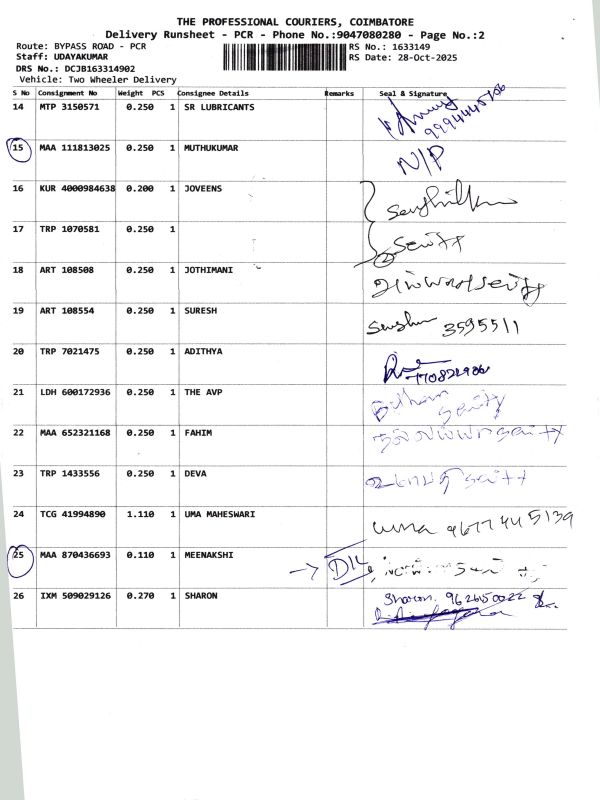 THE PROFESSIONAL COURIERS, COIMBATORE
Delivery Runsheet - PCR - Phone No.:9047080280 - Page No.:2
Route: BYPASS ROAD - PCR
RS No.: 1633149
Staff: UDAYAKUMAR
RS Date: 28-Oct-2025
DRS No.: DCJB163314902
Vehicle: Two Wheeler Delivery
S No Consignment No Weight PCS Consignee Details Remarks Seal & Signature
14 MTP 3150571 0.250 1 SR LUBRICANTS
15 MAA 111813025 0.250 1 MUTHUKUMAR N/P
16 KUR 4000984638 0.200 1 JOVEENS
17 TRP 1070581 0.250 1
18 ART 108508 0.250 1 JOTHIMANI
19 ART 108554 0.250 1 SURESH 3595511
20 TRP 7021475 0.250 1 ADITHYA
21 LDH 600172936 0.250 1 THE AVP
22 MAA 652321168 0.250 1 FAHIM
23 TRP 1433556 0.250 1 DEVA
24 TCG 41994890 1.110 1 UMA MAHESWARI uma 9677445139
25 MAA 870436693 0.110 1 MEENAKSHI
26 IXM 509029126 0.270 1 SHARON Sharon. 9626150022